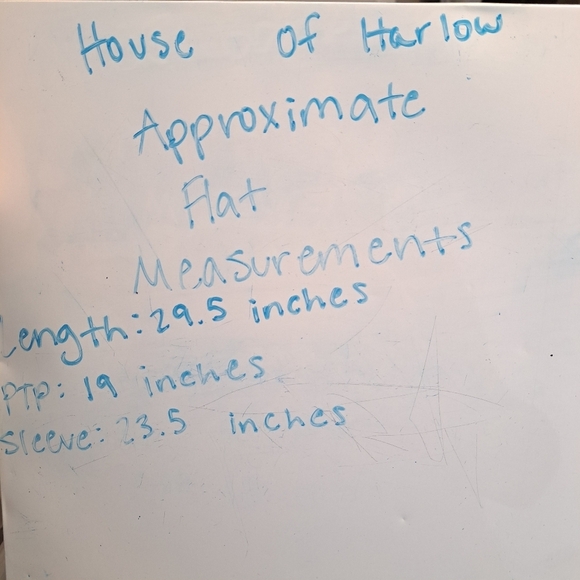 House of Harlow
Approximate
Flat
Measurements
Length: 29.5 inches
PTP: 19 inches
Sleeve: 23.5 inches